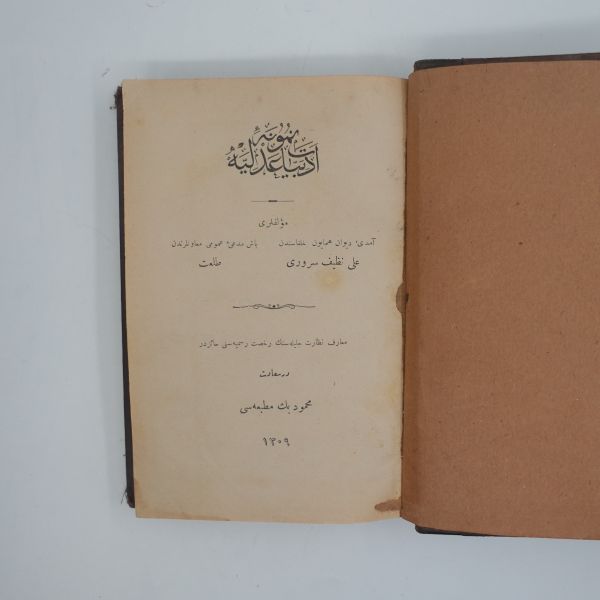 نمونهٔ ادبیات عدلیه
مؤلفلری
آمدیٔ دیوان همایون خلفاسندن باش مدعیٔ عمومی معاونلرندن
علی نظیف سروری طلعت
معارف نظارت جلیله‌سنك رخصت رسمیه‌سنی حائزدر
درسعادت
محمود بك مطبعه‌سی
١٣٠٩